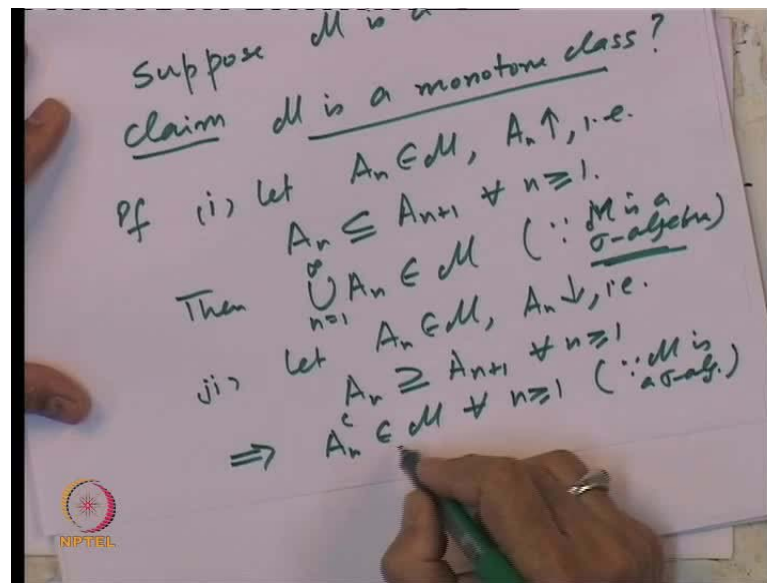 Suppose M is a
claim M is a monotone class?
Pf (i) Let Aₙ ∈ M, Aₙ ↑, i.e.
Aₙ ⊆ Aₙ₊₁ ∀ n ≥ 1.
Then ∞⋃n=1 Aₙ ∈ M (∵ M is a σ-algebra)
ii) Let Aₙ ∈ M, Aₙ ↓, i.e.
Aₙ ⊇ Aₙ₊₁ ∀ n ≥ 1
⇒ Aₙᶜ ∈ M ∀ n ≥ 1 (∵ M is a σ-alg.)
NPTEL